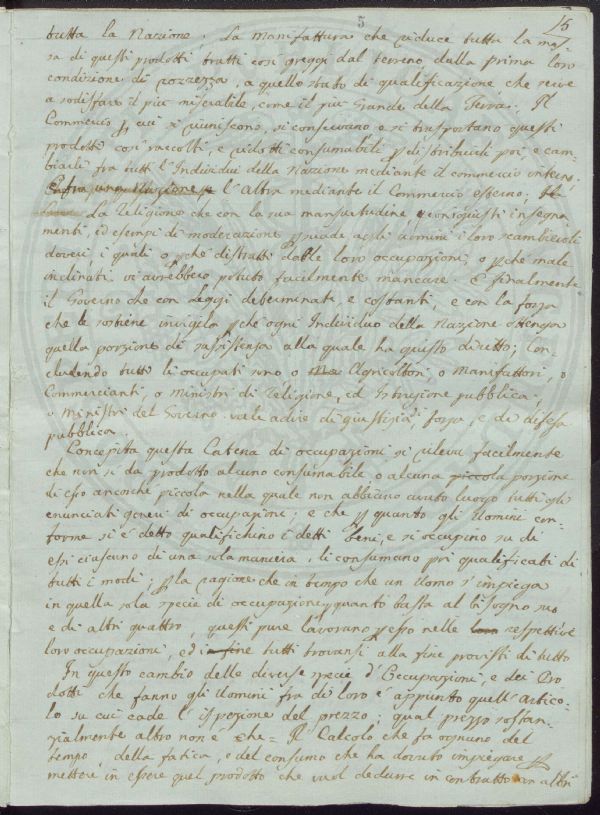 5 15
tutta la Nazione; La Manifattura che riduce tutta la mas-
sa di questi prodotti tratti così greggi dal terreno dalla prima loro
condizione di rozzezza, a quello stato di qualificazione, che serve
a sodisfare il più miserabile, come il più Grande della Terra. Il
Commercio p cui si riuniscono, si conservano e si trasportano questi
prodotti così raccolti, e ridotti consumabili p distribuirli poi, e cam-
biarli fra tutti l'Individui della Nazione mediante il commercio interno,
E fra una Nazione, e l'altra mediante il Commercio esterno;
La Religione che con la sua mansuetudine, e con i giusti insegna-
menti, ed esempi di moderazione psuade agli uomini i loro scambievoli
doveri, i quali o pchè distratti dalle loro occupazioni, o pchè male
inclinati vi avrebbero potuto facilmente mancare. E finalmente
il Governo che con Leggi determinate, e costanti, e con la forza
che le sostiene invigila pchè ogni Individuo della Nazione ottenga
quella porzione di sussistenza alla quale ha giusto diritto; Con-
cludendo tutti li occupati sono o Agricoltori, o Manifattori, o
Commercianti, o Ministri di Religione, ed Istruzione pubblica,
o Ministri del Governo vale a dire di giustizia, forza, e di difesa
pubblica.
Concepita questa Catena di occupazioni si rileva facilmente
che non si da prodotto alcuno consumabile o alcuna piccola porzione
di esso ancorche piccola nella quale non abbiano avuto luogo tutti gli
enunciati generi di occupazione; e che p quanto gli Uomini con-
forme si é detto qualifichino i detti beni, e si occupino su di
essi ciascuno di una sola maniera, li consumano poi qualificati di
tutti i modi; p la ragione che in tempo che un Uomo s'impiega
in quella sola specie di occupazione p quanto basta al bisogno suo
e di altri quattro, questi pure lavorano p esso nelle loro respettive
loro occupazioni, ed in fine tutti trovansi alla fine provisti di tutto
In questo cambio delle diverse specie d'Occupazioni, e dei Pro
dotti che fanno gli Uomini fra di loro é appunto quell'artico-
lo su cui cade l'ispezione del prezzo; qual prezzo sostan-
zialmente altro non é che = Il Calcolo che fa ognuno del
tempo, della fatica, e del consumo che ha dovuto impiegare p
mettere in essere quel prodotto che vuol dedurre in contratto con altri